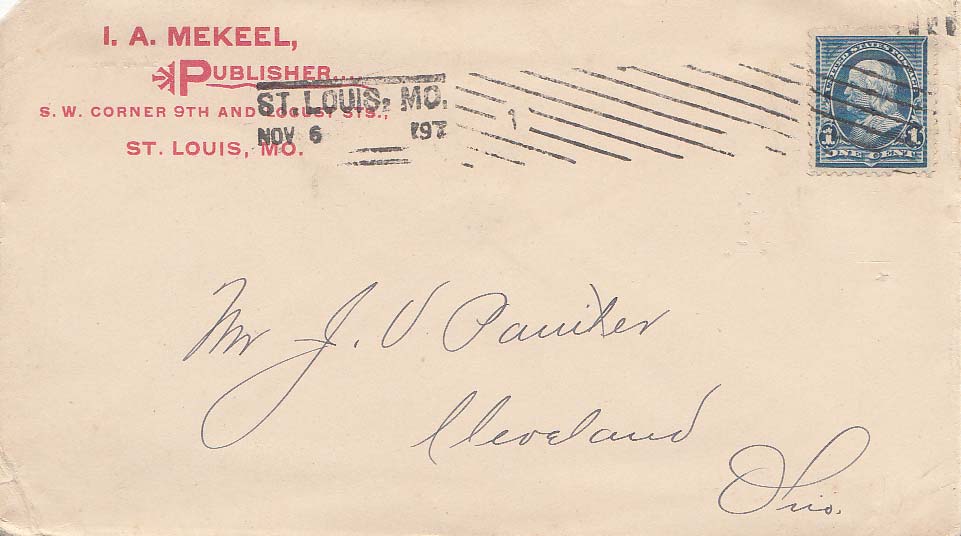 I. A. MEKEEL,
PUBLISHER....
S. W. CORNER 9TH AND LOCUST STS.,
ST. LOUIS, MO.
ST. LOUIS, MO.
NOV 6
1
UNITED STATES POSTAGE
1 1
ONE CENT
Mr J. V. Painter
Cleveland
Ohio.